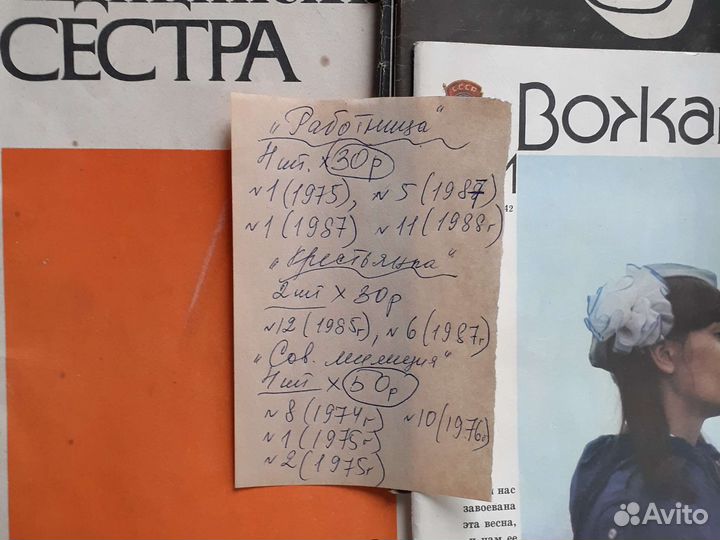 СЕСТРА
Вожа
СССР
42
„Работница"
4 шт. × 30р
N1 (1975), N5 (1987)
N1 (1987) N11 (1988г)
„Крестьянка"
2 шт × 30р
N12 (1985г), N6 (1987г)
„Сов. милиция"
4 шт × 50р
N8 (1974г) N10 (1976г)
N1 (1975г)
N2 (1975г)
нас
завоевана
эта весна,
Avito